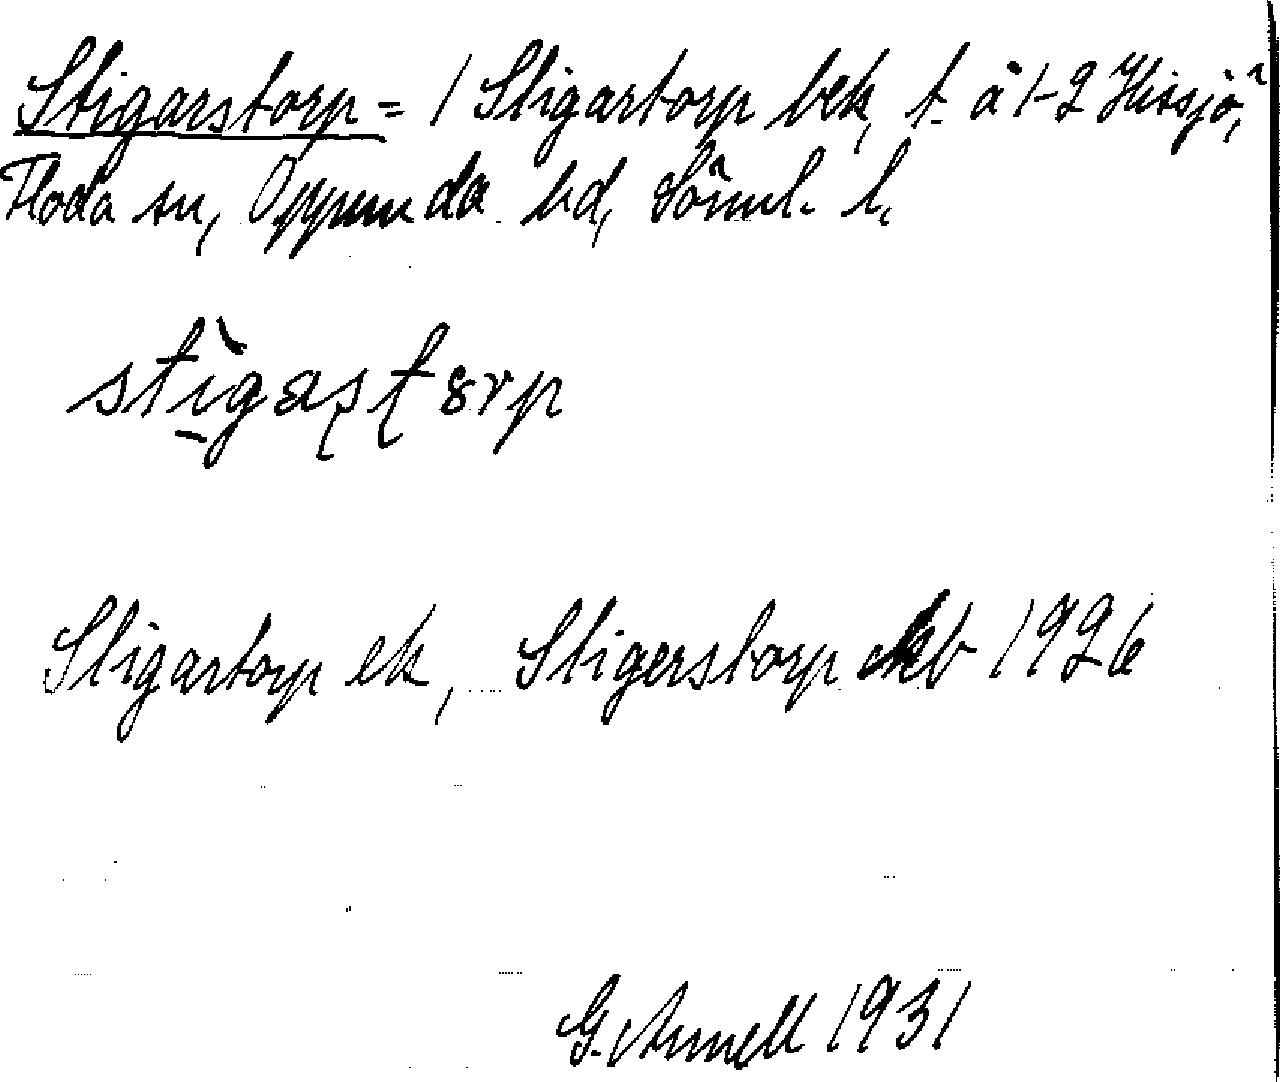 Stigarstorp = 1 Stigartorp bek, t. å 1-2 Hissjö,
Floda sn, Oppunda hd, Söml. l.
stìgaştɞrp
Stigartorp ek, Stigerstorp kb 1926
G. Arnell 1931